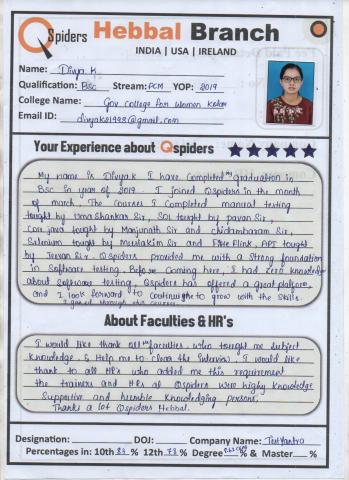 QSpiders Hebbal Branch
INDIA | USA | IRELAND
Name: Divya K
Qualification: BSc Stream: PCM YOP: 2019
College Name: Gov college for women Kolar
Email ID: divyak21998@gmail.com
Your Experience about Qspiders
My name is Divya k I have completed my graduation in
BSc in year of 2019. I joined Qspiders in the month
of march. The courses I completed manual testing
tought by Uma Shankar Sir, SQL tought by pavan Sir,
Core java tought by Manjunath Sir and chidambaram Sir,
Selenium tought by Mustakim Sir and Flink, API tought
by Jeevan Sir. Qspiders provided me with a Strong foundation
in Software testing. Before coming here, I had zero knowledge
about Software testing, Qspiders has offered a great platform,
and I look forward to continue to grow with the Skills.
I gained through the course.
About Faculties & HR's
I would like thank all faculties who tought me subject
knowledge & Help me to clear the Interview. I would like
thank to all HR's who added me this requirement
the trainers and HR's of Qspiders were highly knowledge
Supportive and humble knowledging persons,
Thanks a lot Qspiders Hebbal.
Designation: DOJ: Company Name: TestYantra
Percentages in: 10th % 12th 78 % Degree % & Master %